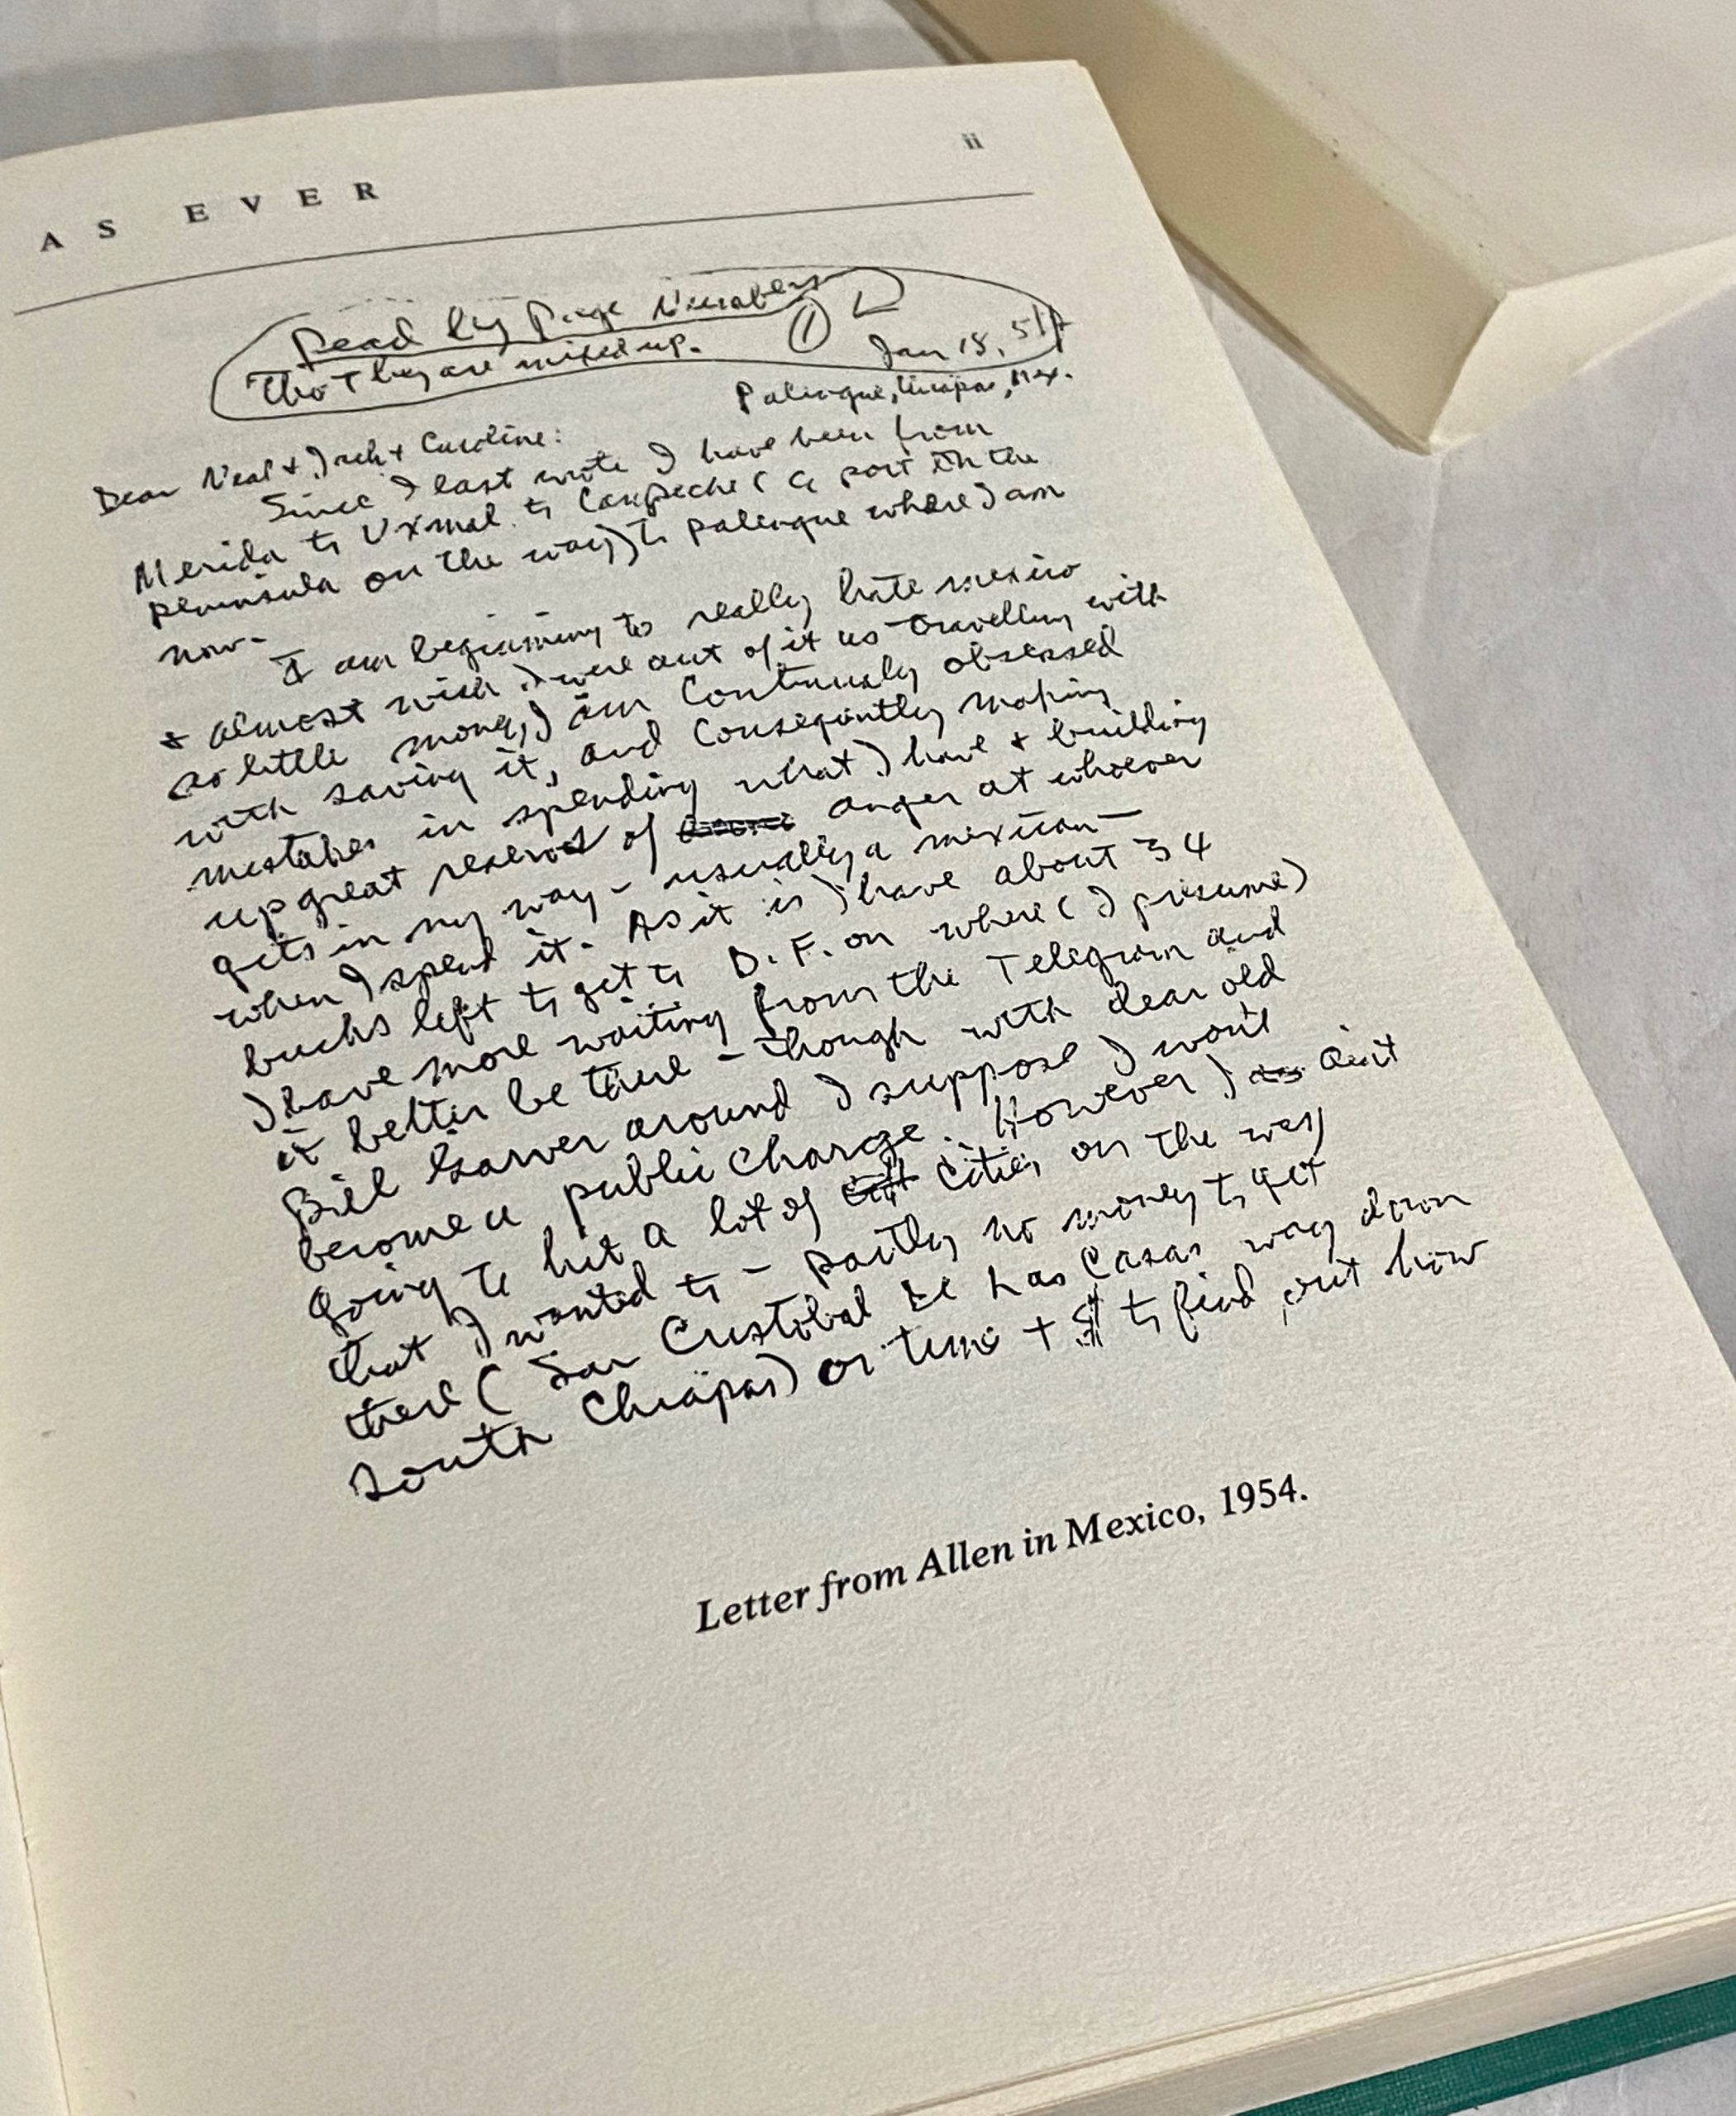 AS EVER ii
Read by Page Numbers
Tho They are mixed up. ①
Jan 18, 54
Palenque, Chiapas, Mex.
Dear Neal & Jack & Caroline:
Since I last wrote I have been from
Merida to Uxmal to Campeche (a port on the
peninsula on the way) to palenque where I am
now.
I am beginning to really hate mexico
& almost wish I were out of it as travelling with
so little money, I am continualy obsessed
with saving it, and consequntly making
mistakes in spending what I have & building
up great reserves of anger at whoever
gets in my way - usually a mexican—
when I spend it. As it is I have about 34
bucks left to get to D.F. on where (I presume)
I have more waiting from the Telegram and
it better be there - though with dear old
Bill Garver around I suppose I won't
become a public charge. However I ain't
going to hit a lot of cities on the way
that I wanted to - partly no money to get
there (San Cristobal de las Casas way down
South Chiapas) or time + $ to find out how
Letter from Allen in Mexico, 1954.